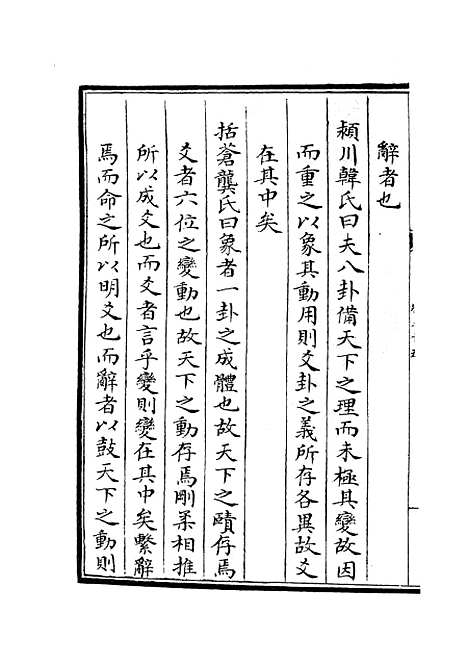 辭者也
潁川韓氏曰夫八卦備天下之理而未極其變故因
而重之以象其動用則爻卦之義所存各異故爻
在其中矣
括蒼龔氏曰象者一卦之成體也故天下之賾存焉
爻者六位之變動也故天下之動存焉剛柔相推
所以成爻也而爻者言乎變則變在其中矣繫辭
焉而命之所以明爻也而辭者以鼓天下之動則